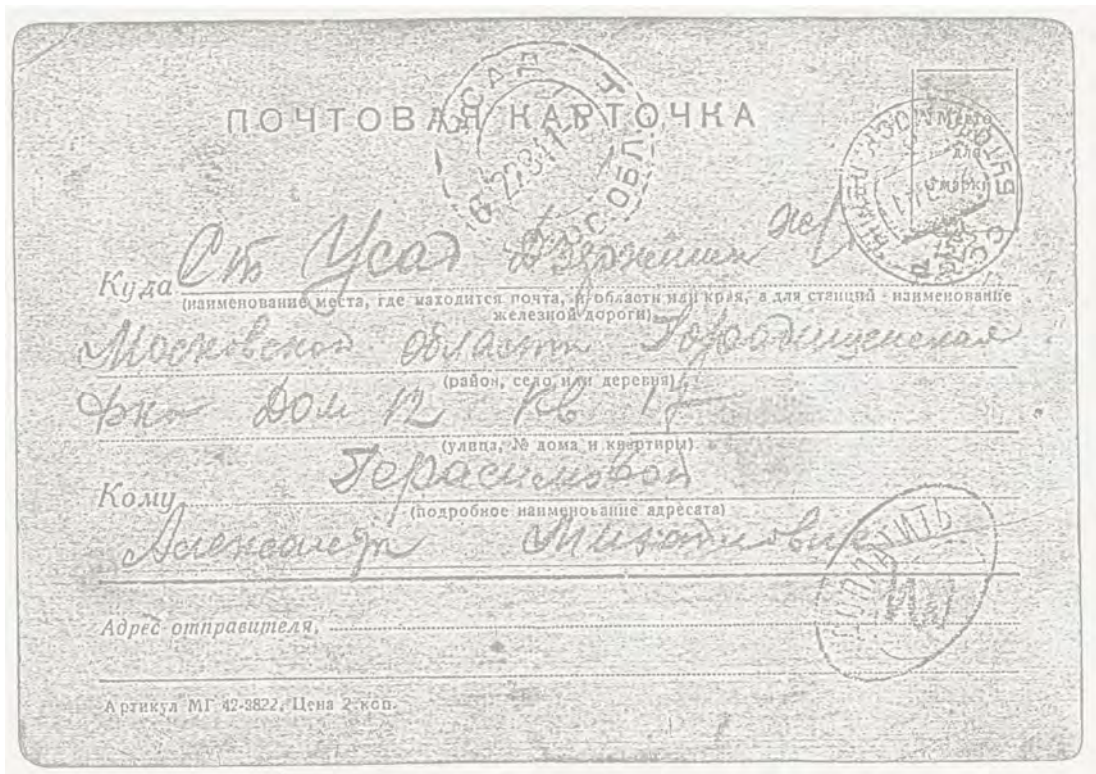 ПОЧТОВАЯ КАРТОЧКА
Место
для
марки
УСАД
МОС. ОБЛ.
27.8.41
Куда Ст Усад Дзержинск жел
(наименование места, где находится почта, и области или края, а для станций - наименование
железной дороги)
Московской области
(район, село или деревня)
Дом 12 кв
(улица, № дома и квартиры)
Кому Герасимовой
(подробное наименование адресата)
Александр
ДОПЛАТИТЬ
Адрес отправителя
Артикул МГ 42-3822. Цена 2 коп.